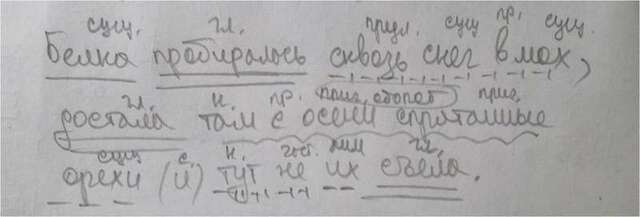 сущ. гл. предл. сущ. пр. сущ.
Белка пробиралась сквозь снег в мох,
гл. н. пр. прич. оборот прич.
достала там с осени спрятанные
сущ с. н. част. мим гл.
орехи (и) тут же их съела.